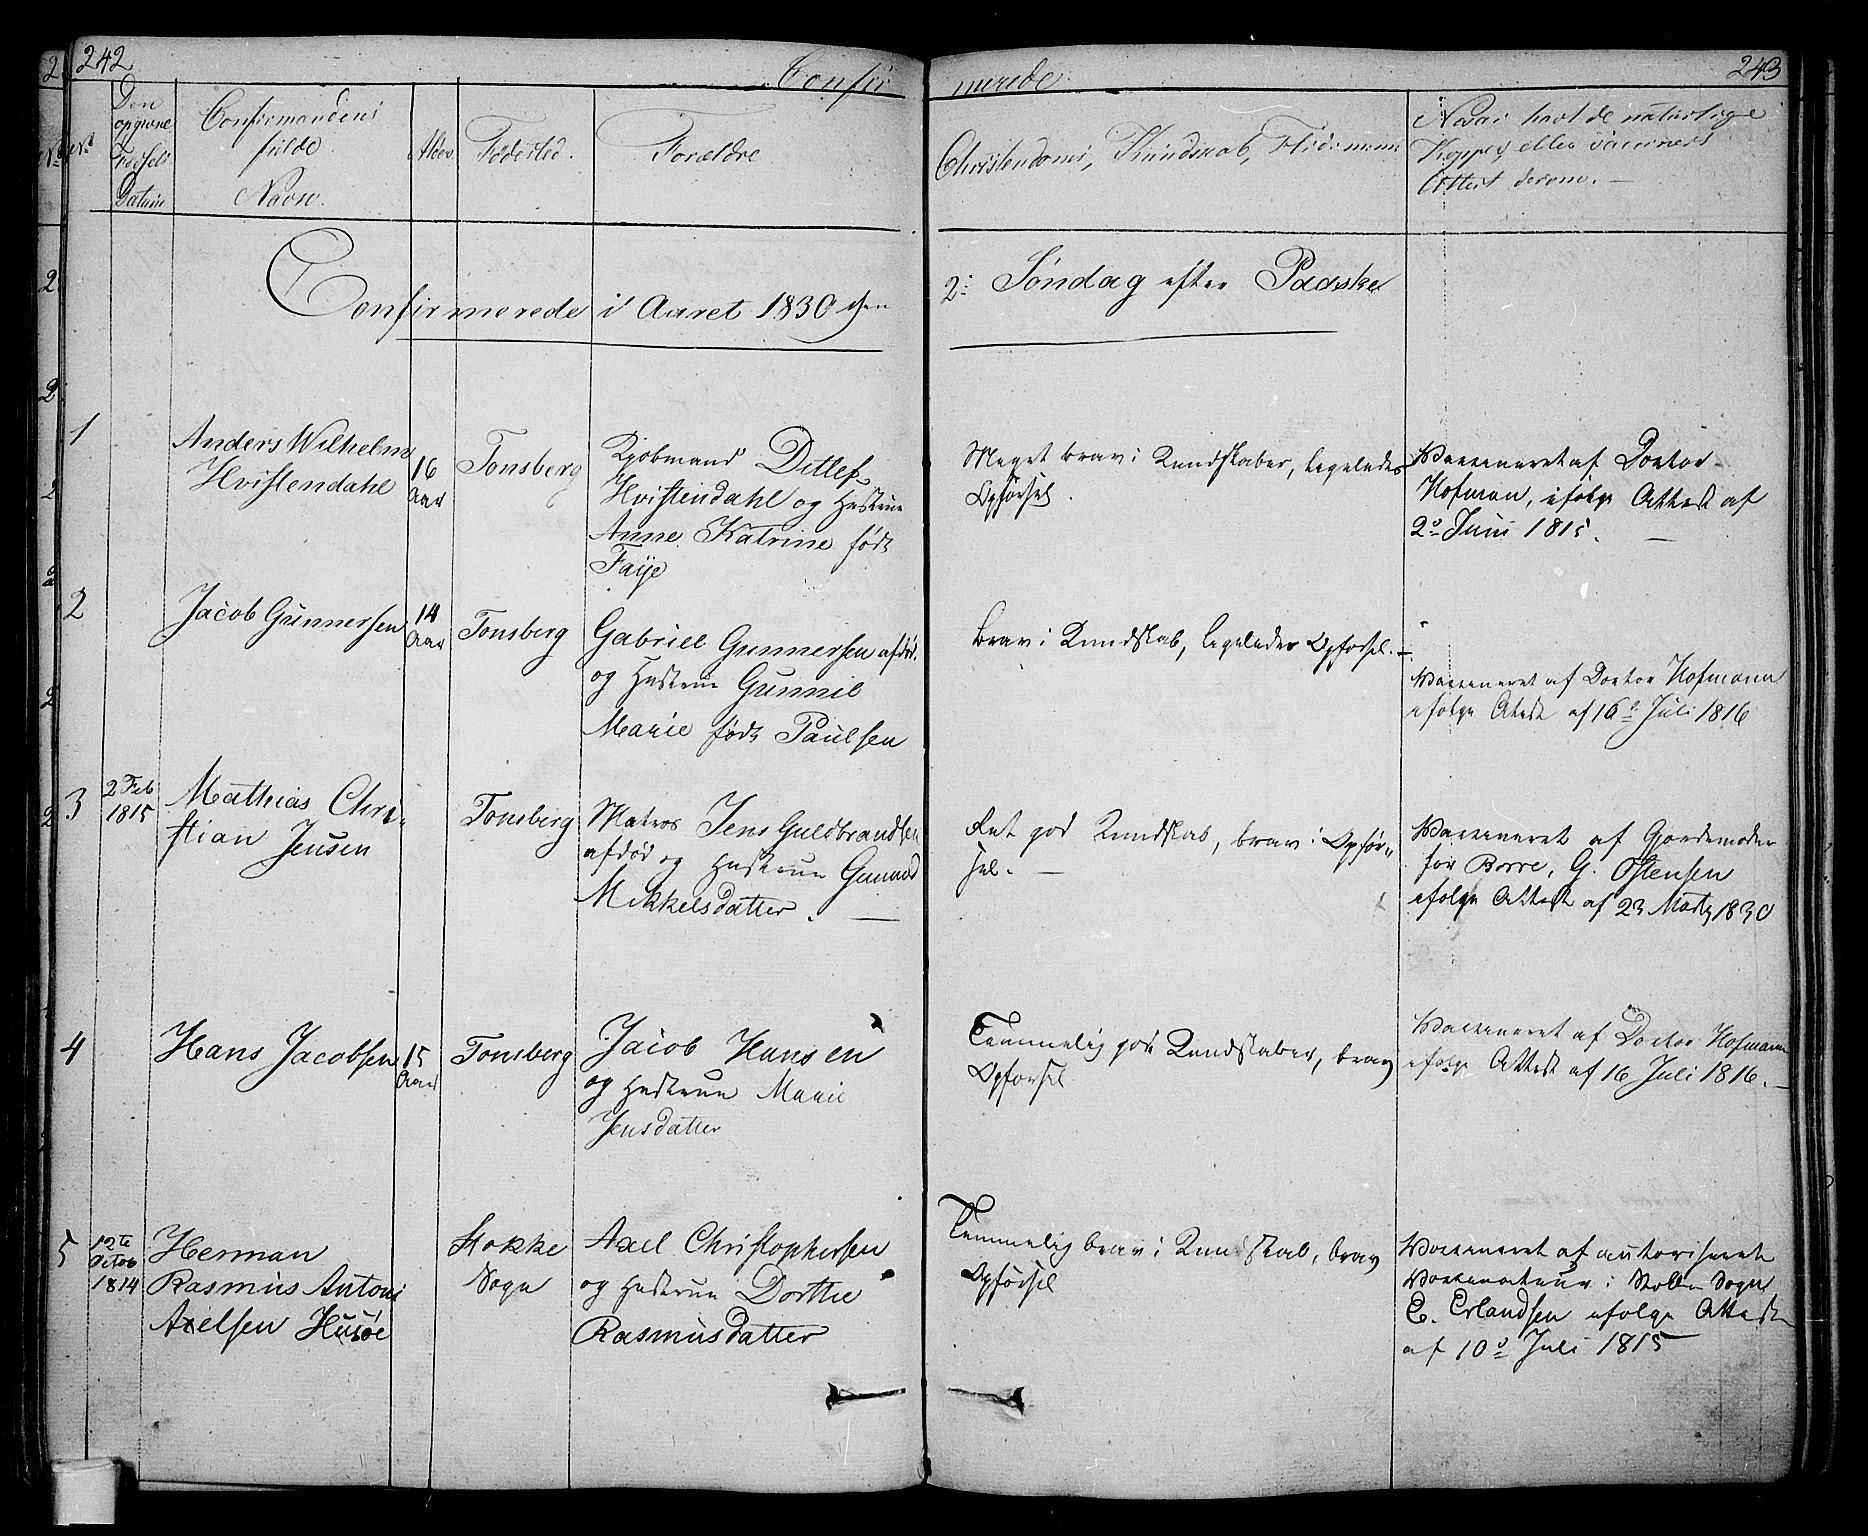 242
Confir
merede
243
No
Den opgivne Fødsels Datum
Confirmandens fulde Navn.
Alder
Fødested.
Forældre
Christendoms, Kundskab, Flid
Naar havt de naturlige
Kopper, eller vaccineret
Attest derom. —
Confirmerede i Aaret 1830 den
2: Søndag efter Paaske
1
Anders Wilhelm
Hvistendahl
16
Aar
Tonsberg
Kjøbmand Ditlef
Hvistendahl og Hustrue
Anne Katrine født
Faÿe
Meget brav i Kundskaber, ligeledes
Opførsel.
Vaccineret af Doctor
Hofman, ifølge Attest af
2º Juni 1815. —
2
Jacob Gunnersen
14
Aar
Tonsberg
Gabriel Gunnersen afdød,
og Hustrue Gunnil
Marie født Paulsen
brav i Kundskab, ligeledes Opførsel. —
Vaccineret af Doctor Hofmann
ifølge Attest af 16de Juli 1816
3
2 Feb
1815
Mathias Chri-
stian Jensen
Tonsberg
Matros Jens Guldbrandsen
afdød og Hustrue Gunnild
Mikkelsdatter. —
Ret god Kundskab, brav i Opfør-
sel. —
Vaccineret af Gjordemoder
for Borre, G. Ostensen
ifølge Attest af 23 Marts 1830
4
Hans Jacobsen
15
Aar
Tonsberg
Jacob Hansen
og Hustrue Marie
Jensdatter
Temmelig god Kundskaber, brav
Opførsel.
Vaccineret af Doctor Hofmann
ifølge Attest af 16 Juli 1816. —
5
12te
Octob
1814
Herman
Rasmus Antoni
Axelsen Husöe
Stokke
Sogn
Axel Christophersen
og Hustrue Dorthe
Rasmusdatter
Temmelig brav i Kundskab, brav
Opførsel
Vaccineret af autoriseret
Vaccinateur i Stokke Sogn
E. Erlandsen ifølge Attest
af 10de Juli 1815